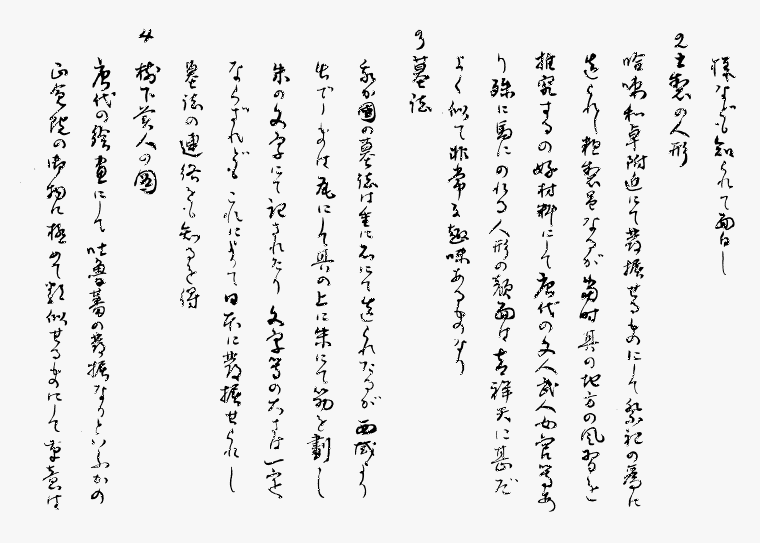 様なども知られて面白し
2 土製の人形
哈喇和卓附近にて発掘せるものにして祭祀の為に
造られし粗製品なるが當時其の地方の風習を
推究するの好材料にして唐代の文人武人女官等あ
り殊に馬にのれる人形の顔面は吉祥天に甚だ
よく似て非常なる趣味あるものなり
3 墓誌
我が國の墓誌は重に石にて造られたるが西域より
出でしものは瓦にして其の上に朱にて筋を劃し
朱の文字にて記されたり文字等の大さは一定
ならざれどもこれによりて日本に発掘せられし
墓誌の連絡をも知るを得
4 樹下美人の図
唐代の絵画にして吐魯蕃の発掘なりといふかの
正倉院の御物に極めて類似せるものにして